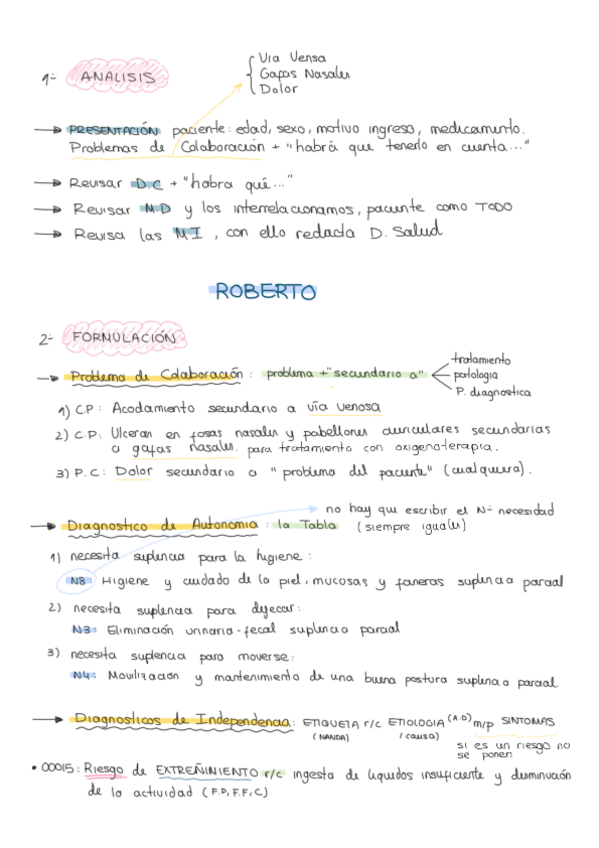 Via Vensa
1- ANALISIS
Gafas Nasales
Dolor
→ PRESENTACIÓN paciente: edad, sexo, motivo ingreso, medicamento.
Problemas de Colaboración + "habrá que tenerlo en cuenta..."
→ Revisar D.C + "habra qué..."
→ Revisar M.D y los interrelacionamos, paciente como TODO
→ Revisa las M.I, con ello redacta D. Salud
ROBERTO
2- FORMULACIÓN
→ Problema de Colaboración: problema + "secundario a"
tratamiento
patologia
P. diagnostica
1) C.P: Acodamiento secundario a vía venosa
2) C.P: Ulceran en fosas nasales y pabellones auriculares secundarias
a gafas nasales. para tratamiento con oxigenoterapia.
3) P.C: Dolor secundario a "problema del paciente" (cualquiera).
no hay que escribir el Nº necesidad
→ Diagnostico de Autonomia: la Tabla (siempre igual(u)
1) necesita suplencia para la higiene:
N8: Higiene y cuidado de la piel, mucosas y faneras suplencia parcial
2) necesita suplencia para dejecar:
N3: Eliminación urinaria-fecal suplencia parcial
3) necesita suplencia para moverse:
N4: Movilización y mantenimiento de una buena postura suplencia parcial
→ Diagnosticos de Independencia: ETIQUETA r/c ETIOLOGIA (A.D) m/p SINTOMAS
(NANDA) (causa)
si es un riesgo no
se ponen
• 00015: Riesgo de EXTREÑIMIENTO r/c ingesta de liquidos insuficiente y disminución
de la actividad (F.D, F.F, C)